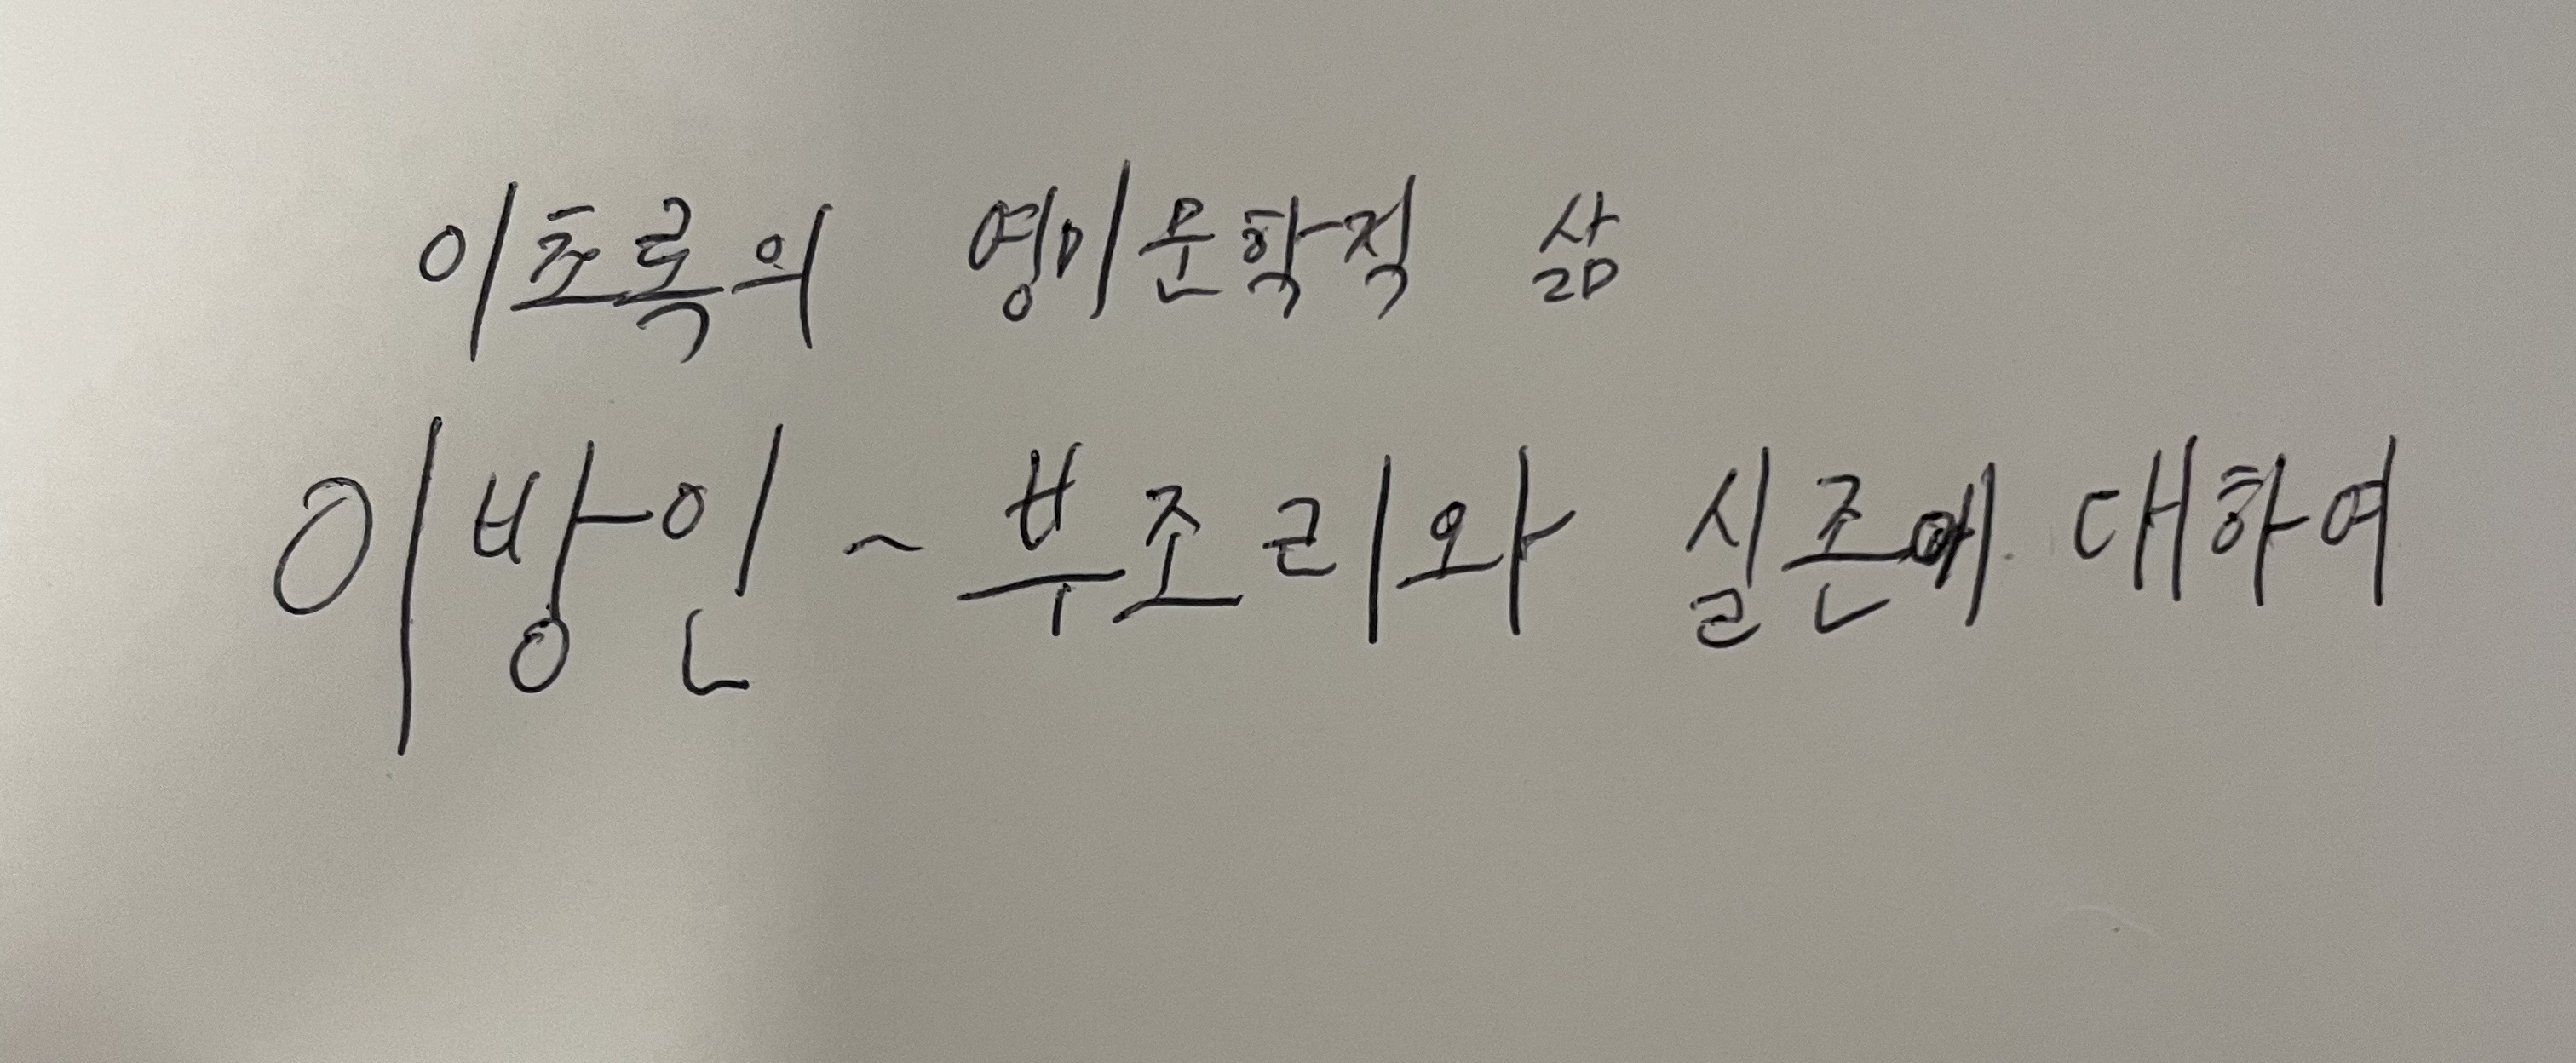 이초록의 영미문학적 삶
이방인 ~ 부조리와 실존에 대하여